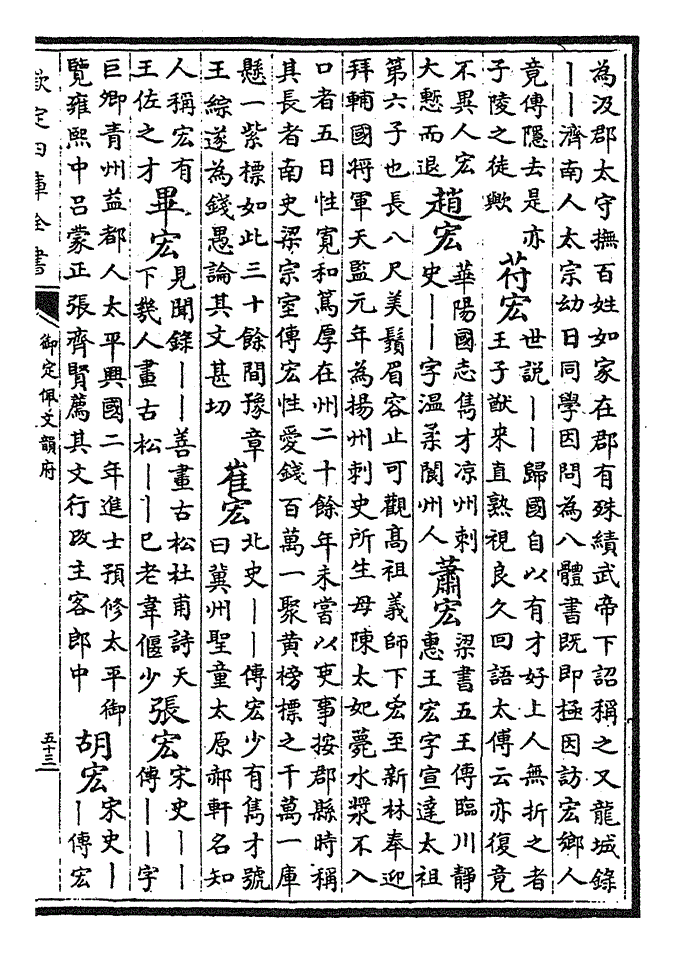 為汲郡太守撫百姓如家在郡有殊績武帝下詔稱之又龍城錄
丨丨濟南人太宗幼日同學因問為八體書既即極因訪宏鄉人
竟傳隱去是亦
子陵之徒歟
苻宏
世説丨丨歸國自以有才好上人無折之者
王子猷来直熟視良久回語太傅云亦復竟
不異人宏
大慙而退
趙宏
華陽國志雋才凉州刺
史丨丨字温柔閬州人
蕭宏
梁書五王傳臨川靜
惠王宏字宣達太祖
第六子也長八尺美鬚眉容止可觀髙祖義師下宏至新林奉迎
拜輔國將軍天監元年為揚州刺史所生母陳太妃薨水漿不入
口者五日性寛和篤厚在州二十餘年未嘗以吏事按郡縣時稱
其長者南史梁宗室傳宏性愛錢百萬一聚黄榜標之千萬一庫
懸一紫標如此三十餘間豫章
王綜遂為錢愚論其文甚切
崔宏
北史丨丨傳宏少有雋才號
曰冀州聖童太原郝軒名知
人稱宏有
王佐之才
畢宏
見聞錄丨丨善畫古松杜甫詩天
下幾人畫古松丨丨已老韋偃少
張宏
宋史丨丨
傳丨丨字
巨卿青州益都人太平興國二年進士預修太平御
覽雍熙中吕蒙正張齊賢薦其文行改主客郎中
胡宏
宋史丨
丨傳宏
欽定四庫全書
御定佩文韻府
五十三